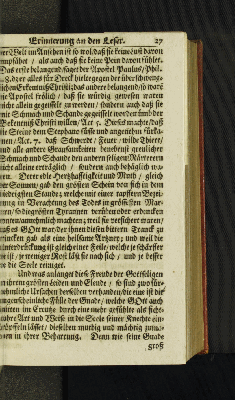 Erinnerung an den Leser. 27
der Welt im Ansehen ist so wol/daß sie keine Lust davon
empfähet / als auch daß sie keine Pein davon fühlet.
Das erste belangend/saget der Apostel Paulus/Phil.
3. 8. der alles für Dreck hielte gegen der überschweng-
lichen Erkentnuß Christi; das ander belangend/so waren
die Apostel frölich / daß sie würdig gewesen waren
nicht allein gegeisselt zu werden / sondern auch daß sie
mit Schmach und Schande gegeisselt worden umb der
Bekentnuß Christi willen/Act. 5. Dieses machte/daß
die Steine dem Stephano süsse und angenehm fürka-
men/Act. 7. daß Schwerter/Feuer/wilde Thiere/
und alle andere Grausamkeiten benebenst greulicher
Schmach und Schande den andern seligen Märterern
nicht alleine erträglich / sondern auch behäglich wa-
ren. Derer edle Hertzhafftigkeit und Muth / gleich
der Sonnen/gab den grösten Schein von sich in dem
niedrigsten Stande; welche mit einer tapffern Bezei-
gung in Verachtung des Todes in grössesten Mar-
tern/so die grösten Tyrannen
unüberwindlich machten; weil sie versichert waren/
daß es GOtt war/der ihnen diesen bittern Tranck zu
trincken gab als ein heilsame Artzney; und weil die
Unterdrückung ist gleich einer Feile/welche je schärffer
sie ist / je weniger Rost läst sie nach sich / und je besser
sie die Seele reiniget.
Und was anlanget diese Freude der Gottseligen
in ihrem grösten Leiden und Elende / so sind zwo für-
nehmliche Ursachen derselben verhanden; die eine ist die
unaussprechliche Fülle der Gnade/welche GOtt auch
mitten im Creutze durch eine mehr gefühlte als sicht-
bahre Art und Weise in die Seele seiner Knechte ein-
tröpffeln lässet/dieselben muthig und mächtig zuma-
chen in ihrer Beharrung. Denn wie seine Gnade
groß